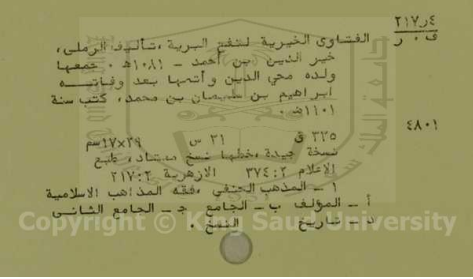 ٢١٧٫٤
ف ٠ ر الفتاوى الخيرية لنفع البرية ،تأليف الرملى،
خير الدين بن أحمد - ١٠٨١هـ ٠ جمعها
ولده محي الدين وأتمها بعد وفاتــه
ابراهيم بن سليمان بن محمد، كتب سنة
١١٠١هـ ٠
٤٨٠١
٣٣٥ ق ٣١ س ٢٩×١٧سم
نسخة جيدة ،خطها نسخ معتاد، طبع
الاعلام ٢: ٣٧٤ الازهرية ٢: ٢١٧
١ - المذهب الحنفي ،فقه المذاهب الاسلامية
أ - المؤلف ب - الجامع جـ - الجامع الثانى
د - تاريخ النسخ ٠
Copyright © King Saud University